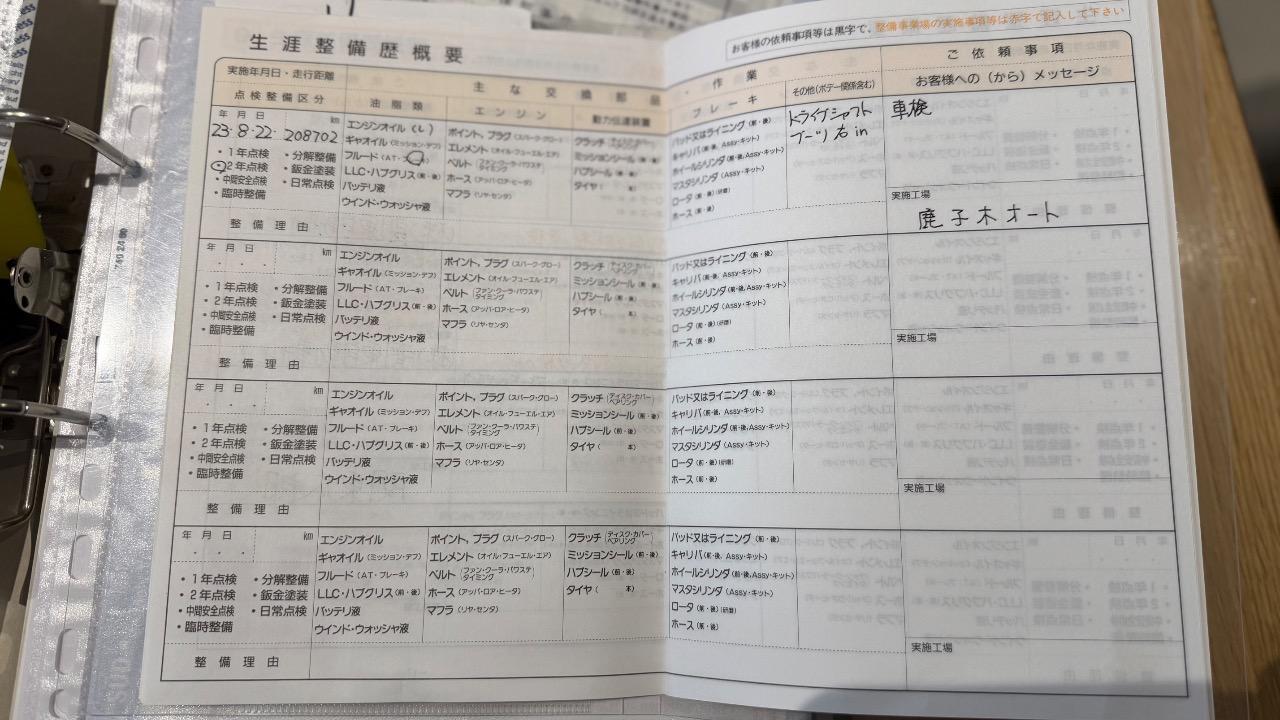 生涯整備歴概要
お客様の依頼事項等は黒字で、整備事業場の実施事項等は赤字で記入して下さい
実施年月日・走行距離
点検整備区分
主な交換部品・作業
油脂類 エンジン 動力伝達装置 ブレーキ その他(ボデー関係含む)
ご依頼事項
お客様への(から)メッセージ
年 月 日 km
23・8・22・ 208702
・1年点検 ・分解整備
・2年点検 ・鈑金塗装
・中間安全点検 ・日常点検
・臨時整備
整備理由
エンジンオイル (L)
ギヤオイル(ミッション・デフ)
フルード(AT・ブレーキ)
LLC・ハブグリス(前・後)
バッテリ液
ウインド・ウォッシャ液
ポイント、プラグ(スパーク・グロー)
エレメント(オイル・フューエル・エア)
ベルト(ファン・クーラ・パワステ タイミング)
ホース(アッパ・ロア・ヒータ)
マフラ(リヤ・センタ)
クラッチ(ディスク・カバー ベアリング)
ミッションシール(前・後)
ハブシール(前・後)
タイヤ( 本)
パッド又はライニング(前・後)
キャリパ(前・後、Assy・キット)
ホイールシリンダ(前・後、Assy・キット)
マスタシリンダ(Assy・キット)
ロータ(前・後)(研磨)
ホース(前・後)
ドライブシャフト
ブーツ 右 in
車検
実施工場
鹿子木オート
年 月 日 km
・1年点検 ・分解整備
・2年点検 ・鈑金塗装
・中間安全点検 ・日常点検
・臨時整備
整備理由
エンジンオイル
ギヤオイル(ミッション・デフ)
フルード(AT・ブレーキ)
LLC・ハブグリス(前・後)
バッテリ液
ウインド・ウォッシャ液
ポイント、プラグ(スパーク・グロー)
エレメント(オイル・フューエル・エア)
ベルト(ファン・クーラ・パワステ タイミング)
ホース(アッパ・ロア・ヒータ)
マフラ(リヤ・センタ)
クラッチ(ディスク・カバー ベアリング)
ミッションシール(前・後)
ハブシール(前・後)
タイヤ( 本)
パッド又はライニング(前・後)
キャリパ(前・後、Assy・キット)
ホイールシリンダ(前・後、Assy・キット)
マスタシリンダ(Assy・キット)
ロータ(前・後)(研磨)
ホース(前・後)
実施工場
年 月 日 km
・1年点検 ・分解整備
・2年点検 ・鈑金塗装
・中間安全点検 ・日常点検
・臨時整備
整備理由
エンジンオイル
ギヤオイル(ミッション・デフ)
フルード(AT・ブレーキ)
LLC・ハブグリス(前・後)
バッテリ液
ウインド・ウォッシャ液
ポイント、プラグ(スパーク・グロー)
エレメント(オイル・フューエル・エア)
ベルト(ファン・クーラ・パワステ タイミング)
ホース(アッパ・ロア・ヒータ)
マフラ(リヤ・センタ)
クラッチ(ディスク・カバー ベアリング)
ミッションシール(前・後)
ハブシール(前・後)
タイヤ( 本)
パッド又はライニング(前・後)
キャリパ(前・後、Assy・キット)
ホイールシリンダ(前・後、Assy・キット)
マスタシリンダ(Assy・キット)
ロータ(前・後)(研磨)
ホース(前・後)
実施工場
年 月 日 km
・1年点検 ・分解整備
・2年点検 ・鈑金塗装
・中間安全点検 ・日常点検
・臨時整備
整備理由
エンジンオイル
ギヤオイル(ミッション・デフ)
フルード(AT・ブレーキ)
LLC・ハブグリス(前・後)
バッテリ液
ウインド・ウォッシャ液
ポイント、プラグ(スパーク・グロー)
エレメント(オイル・フューエル・エア)
ベルト(ファン・クーラ・パワステ タイミング)
ホース(アッパ・ロア・ヒータ)
マフラ(リヤ・センタ)
クラッチ(ディスク・カバー ベアリング)
ミッションシール(前・後)
ハブシール(前・後)
タイヤ( 本)
パッド又はライニング(前・後)
キャリパ(前・後、Assy・キット)
ホイールシリンダ(前・後、Assy・キット)
マスタシリンダ(Assy・キット)
ロータ(前・後)(研磨)
ホース(前・後)
実施工場